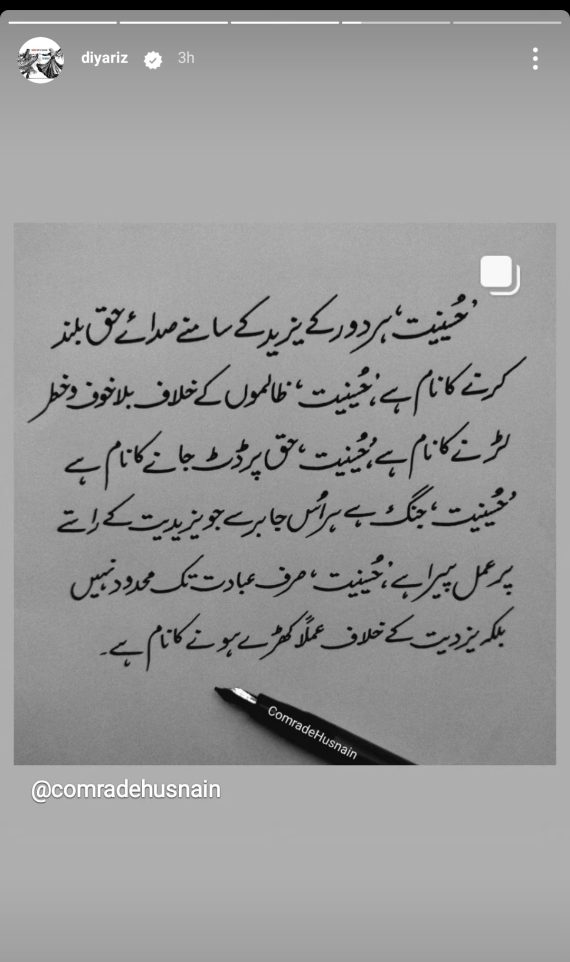 diyariz 3h
’حُسینیت‘ ہر دور کے یزید کے سامنے صدائے حق بلند
کرنے کا نام ہے، ’حُسینیت‘ ظالموں کے خلاف بلا خوف و خطر
لڑنے کا نام ہے، ’حُسینیت‘ حق پر ڈٹ جانے کا نام ہے
’حُسینیت‘ جنگ ہے ہر اُس جابر سے جو یزیدیت کے راستے
پر عمل پیرا ہے، ’حُسینیت‘ صرف عبادت تک محدود نہیں
بلکہ یزدیت کے خلاف عملاً کھڑے ہونے کا نام ہے۔
ComradeHusnain
@comradehusnain